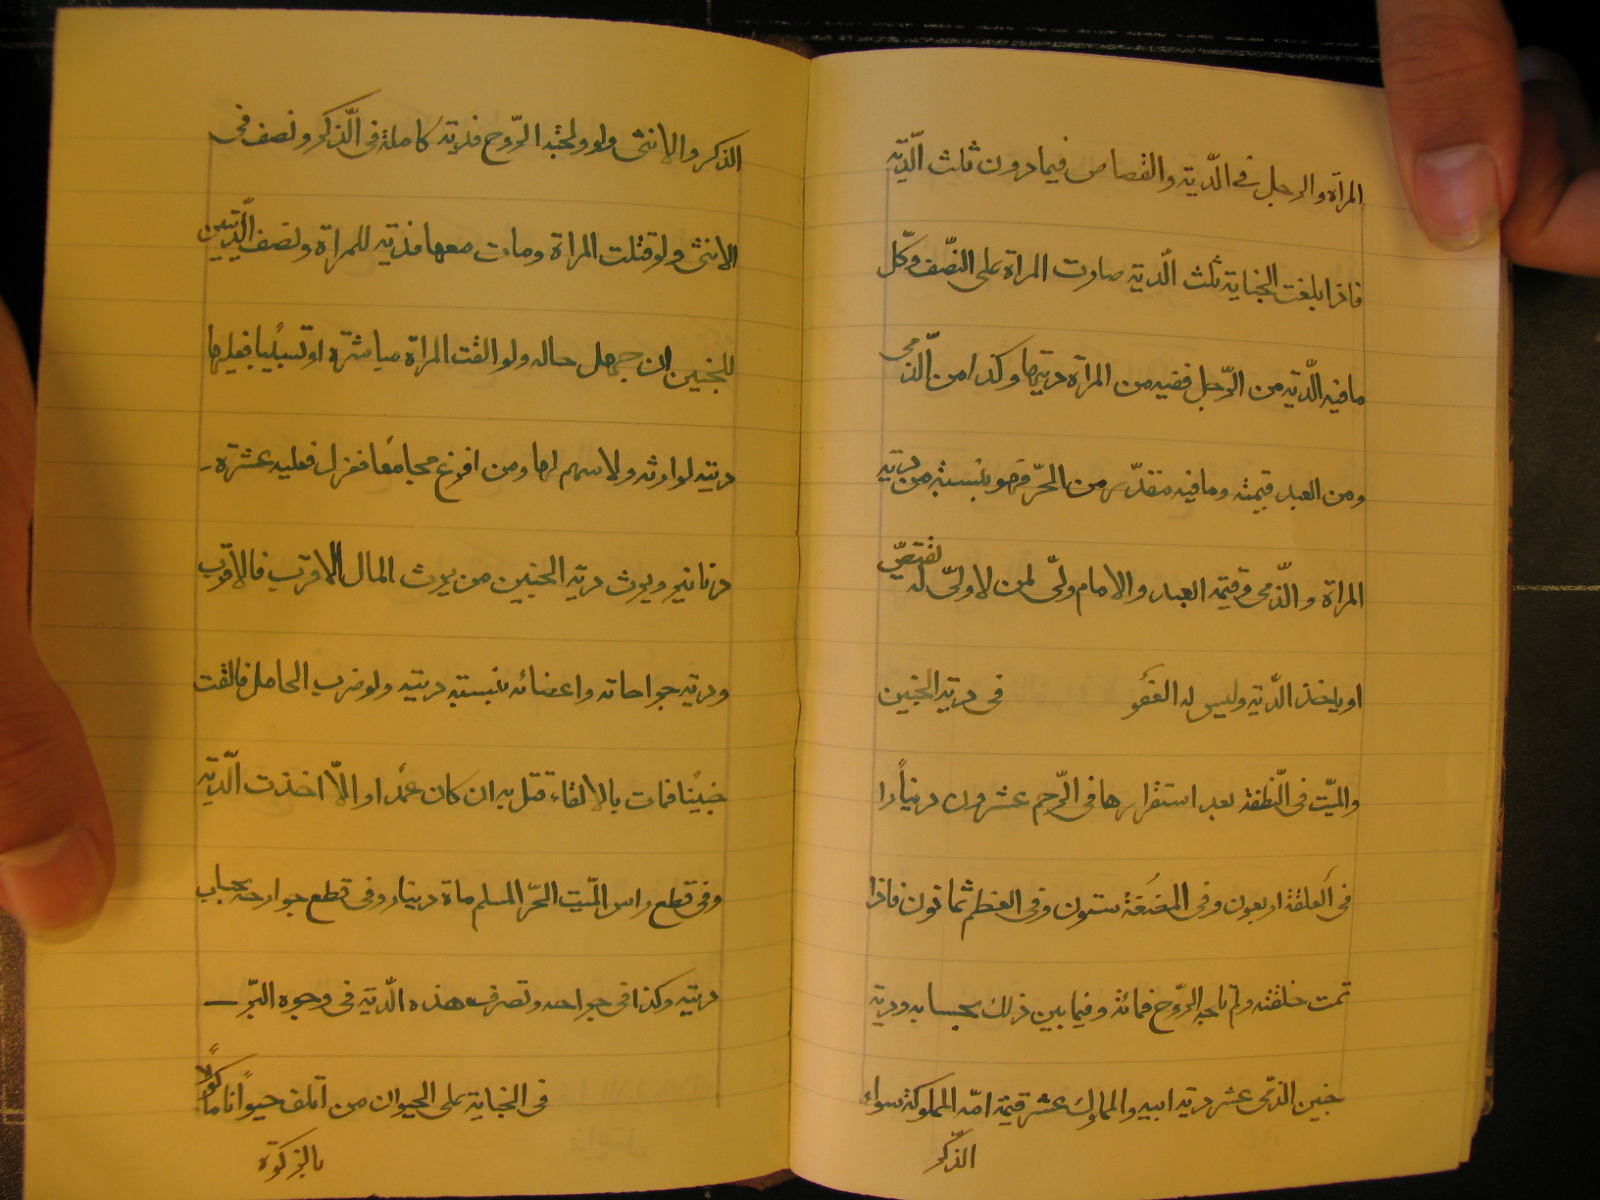 المرأة والرجل في الدّية والقصاص فيما دون ثلث الدّية
فاذا بلغت الجناية ثلث الدّية صارت المرأة على النّصف وكلّ
ما فيه الدّية من الرّجل ففيه من المرأة ديتها وكذا من الذّمى
ومن العبد قيمته وما فيه مقدّر من الحرّ فهو بنسبته من دية
المرأة والذّمى وقيمة العبد والامام ولىّ لمن لا ولىّ له يقتصّ
او ياخذ الدّية وليس له العفو فى دية الجنين
والميّت فى النّطفة بعد استقرارها فى الرّحم عشرون ديناراً
فى العلقة اربعون وفى المضغة ستون وفى العظم ثمانون فاذا
تمت خلقته ولم تلجه الرّوح فمائة وفيما بين ذلك بحسابه ودية
جنين الذمّى عشر دية ابيه والمملوك عشر قيمة امّه المملوكة سواء
الذّكر
الذكر والانثى ولو ولجته الرّوح فدية كاملة فى الذّكر ونصف فى
الانثى ولو قتلت المراة ومات معها فدية للمراة ونصف الدّيتين
للجنين ان جهل حاله ولو القت المراة مباشرة او تسبيبا فعليها
ديته لوارثه ولا سهم لها ومن افزع مجامعًا فعزل فعليه عشرة
دنانير ويرث دية الجنين من يرث المال الاقرب فالاقرب
ودية جراحاته واعضائه بنسبته ديته ولو ضرب الحامل فالقت
جنينًا فمات بالالقاء قتل به ان كان عمدا والاّ اخذت الدّية
وفى قطع راس الميّت الحرّ المسلم مأة دينار وفى قطع جوارحه بحساب
ديته وكذا فى جراحه وتصرف هذه الدّية فى وجوه البرّ
فى الجناية على الحيوان من اتلف حيوانًا ماكولاً
بالزكوة